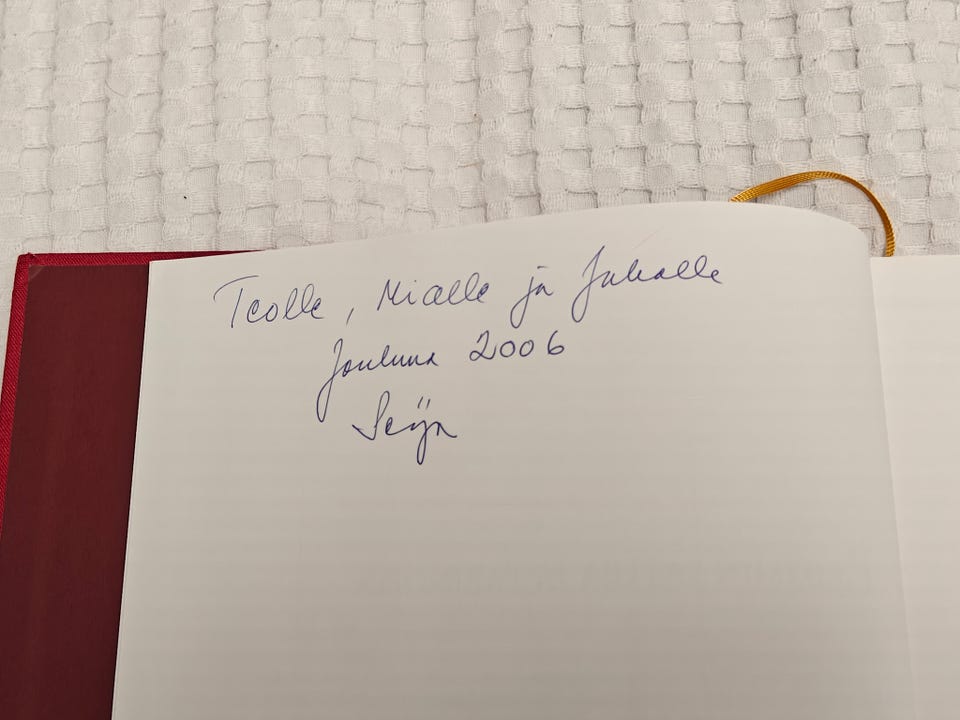 Teolle, Mialle ja Juhalle
Jouluna 2006
Seija